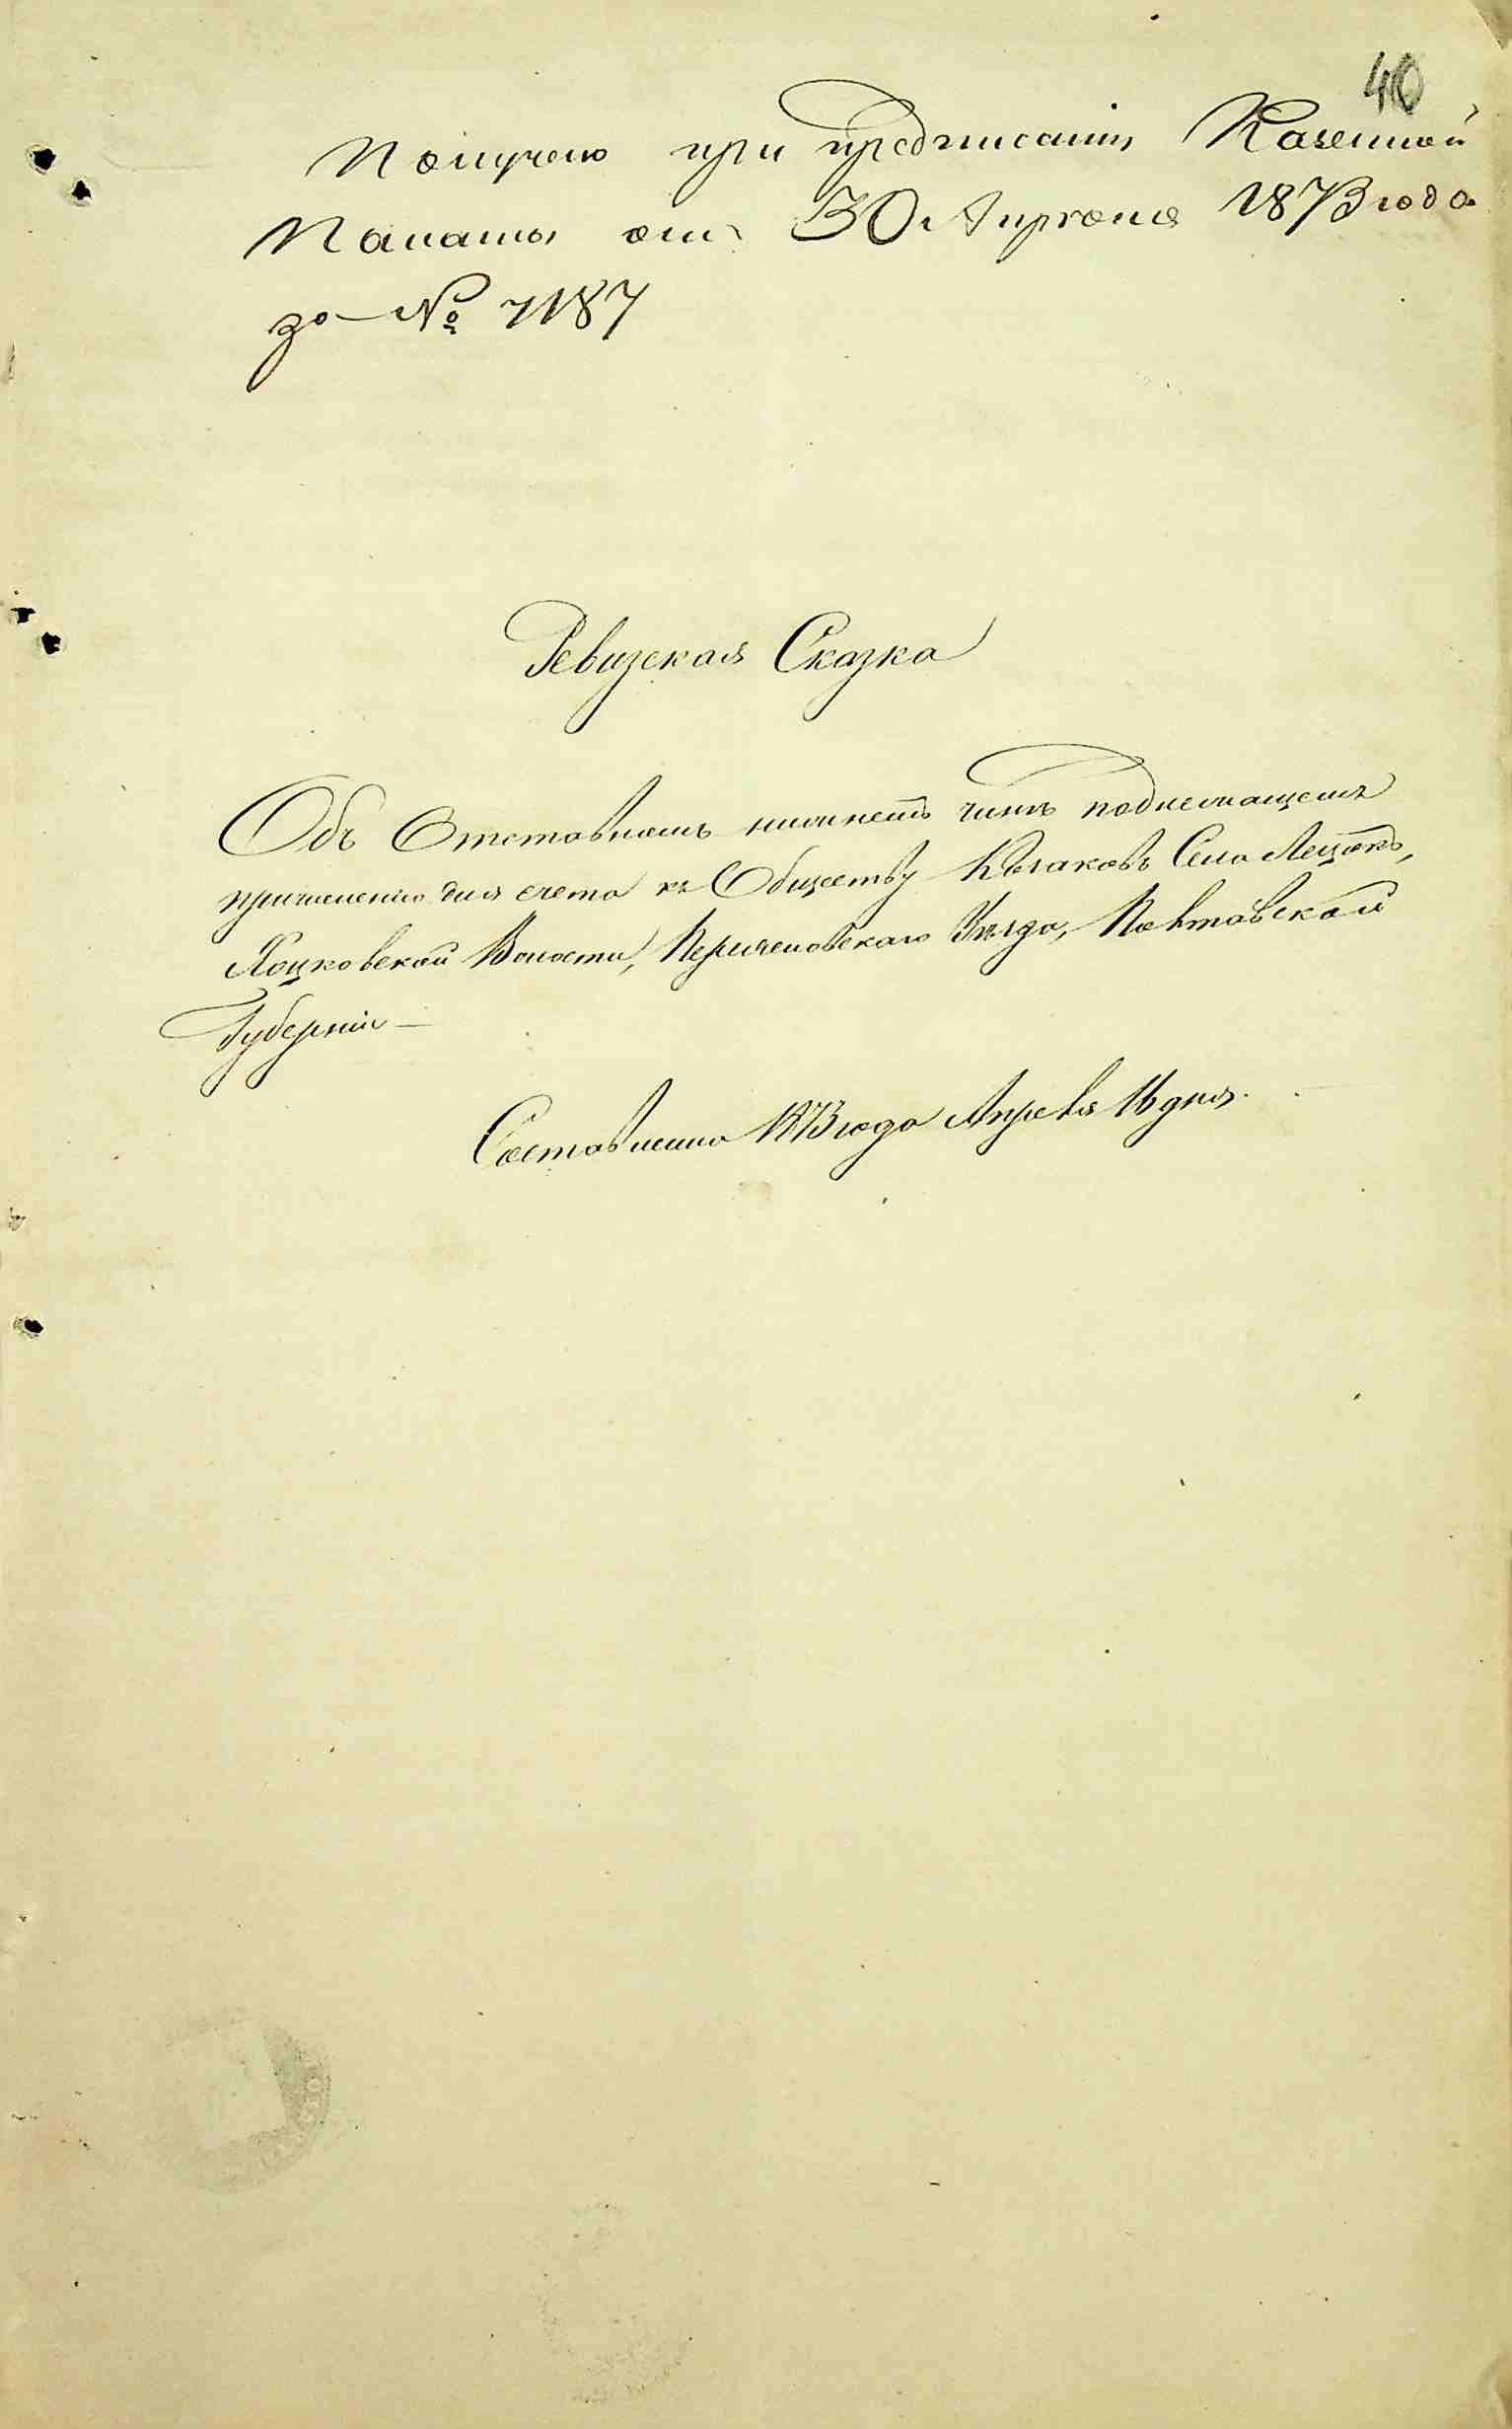 40
Получено при предписаніи Казенной
Палаты отъ 30 Апрѣля 1873 года
за № 7187
Ревизская Сказка
Объ Отставномъ нижнемъ чинѣ подлежащемъ
причисленію для счета къ Обществу Козаковъ Села
Хоцковской Волости, Переяславскаго Уѣзда, Полтавской
Губерніи —
Составлена 1873 года Апреля 16 дня.